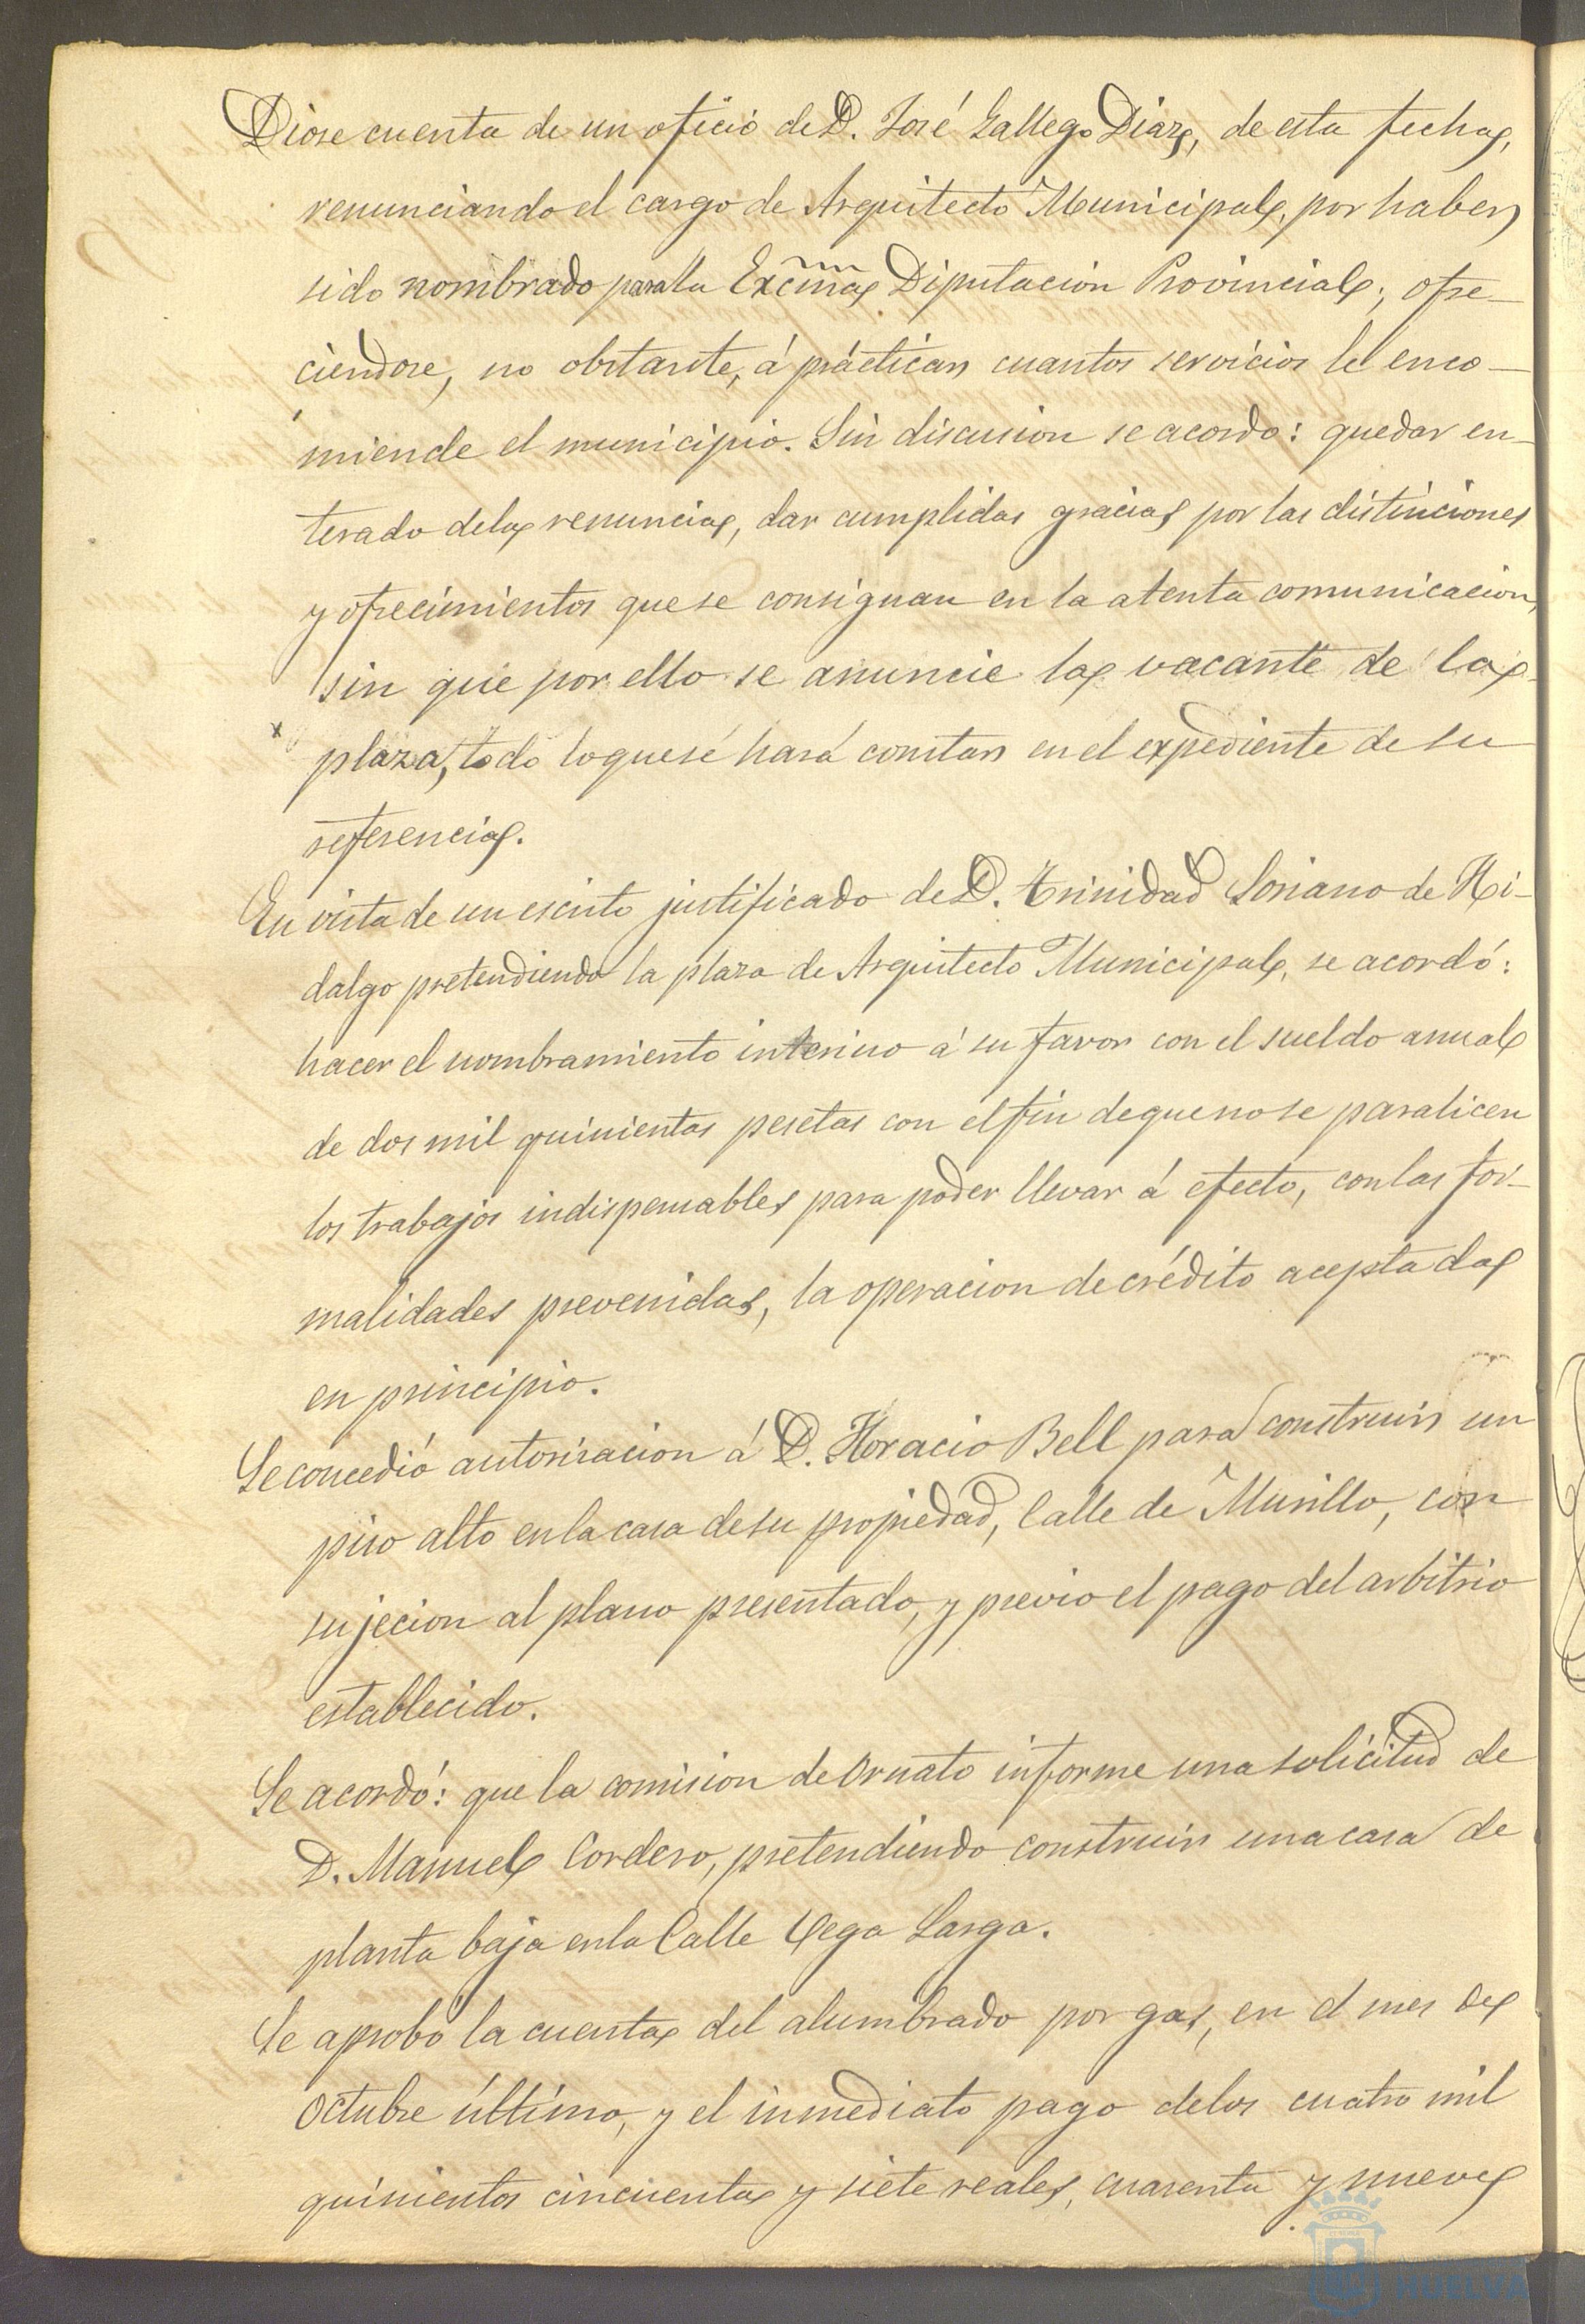 Diose cuenta de un oficio de D. José Gallego Diaz, de esta fecha,
renunciando el cargo de Arquitecto Municipal, por haber
sido nombrado para la Excma Diputacion Provincial; ofre-
ciendose, no obstante, á practicar cuantos servicios le enco-
miende el municipio. Sin discusion se acordo: quedar en-
terado dela renuncia, dar cumplidas gracias por las distinciones
y ofrecimientos que se consignan en la atenta comunicacion,
sin que por ello se anuncie la vacante de la
plaza, todo lo que se hará constar en el expediente de su
referencia.
En vista de un escrito justificado de D. Trinidad Soriano de Hi-
dalgo pretendiendo la plaza de Arquitecto Municipal, se acordó:
hacer el nombramiento interino á su favor con el sueldo anual
de dos mil quinientas pesetas con el fin de que no se paralicen
los trabajos indispensables para poder llevar á efecto, con las for-
malidades prevenidas, la operacion de crédito aceptada
en principio.
Se concedió autorisacion á D. Horacio Bell para construir un
piso alto en la casa de su propiedad, Calle de Murillo, con
sujecion al plano presentado, y previo el pago del arbitrio
establecido.
Se acordó: que la comision de Ornato informe una solicitud de
D. Manuel Cordero, pretendiendo construir una casa de
planta baja en la Calle Vega Larga.
Se aprobó la cuenta del alumbrado por gas, en el mes de
Octubre último, y el inmediato pago delos cuatro mil
quinientos cincuenta y siete reales, cuarenta y nueve
HUELVA